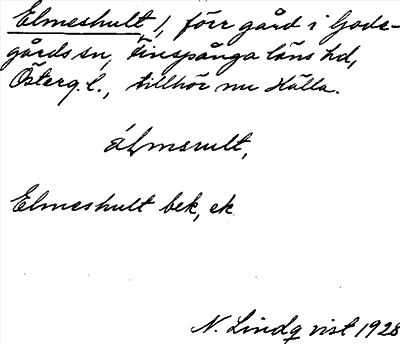 Elmeshult /, förr gård i Gods-
gårds sn, Finspånga läns hd,
Österg. l., tillhör nu Hälla.
álmsult,
Elmeshult bek, ek
N. Lindqvist 1928